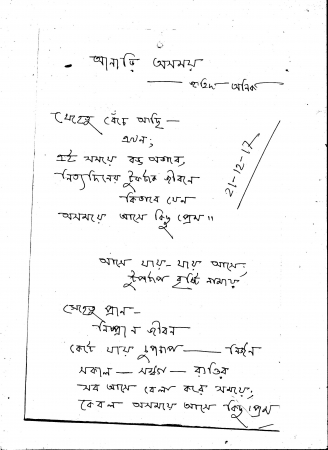 আনাড়ি অসময়
— জাহিদ অনিক
যেহেতু বেঁচে আছি —
এখন;
এই সময়ে বড় অভাবে,
নিত্যদিনের টুকটাক জীবনে
কিভাবে যেন
অসময়ে আসে কিছু প্রেম॥
21-12-17
আসে যায়-যায় আসে,
টুপটাপ বৃষ্টি নামায়
যেহেতু প্রান —
নিষ্প্রান জীবন
কেটে যায় চুপচাপ — নির্জন
সকাল — সন্ধ্যা — রাত্তির
সব আসে বেলা করে সময়ে;
কেবল অসময়ে আসে কিছু প্রেম